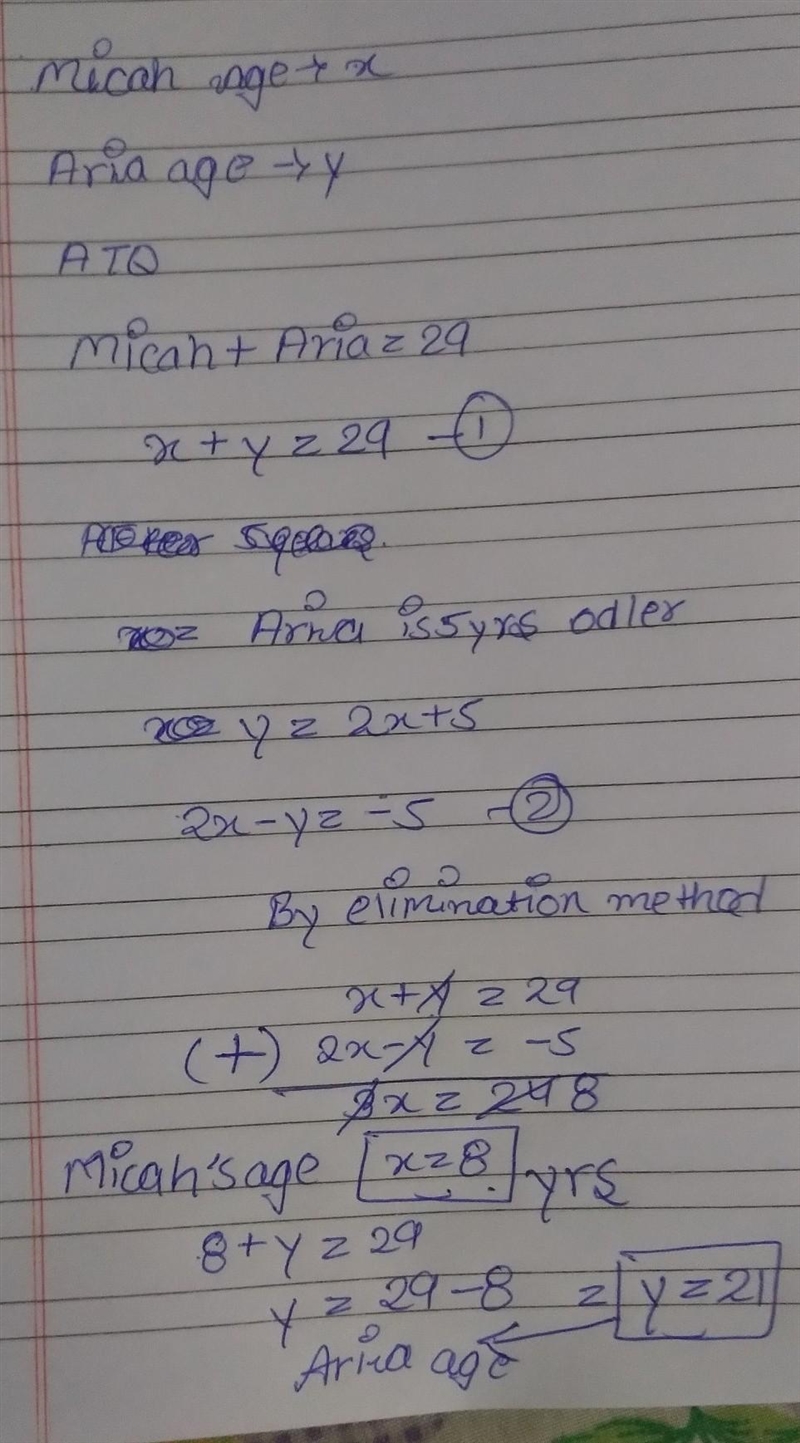 Micah age → x
Aria age → y
ATQ
Micah + Aria = 29
x + y = 29 - ①
Aria is 5 yrs odler
y = 2x + 5
2x - y = -5 - ②
By elimination method
x + y = 29
(+) 2x - y = -5
3x = 24 8
Micah's age x = 8 yrs
8 + y = 29
y = 29 - 8 = y = 21
Aria age